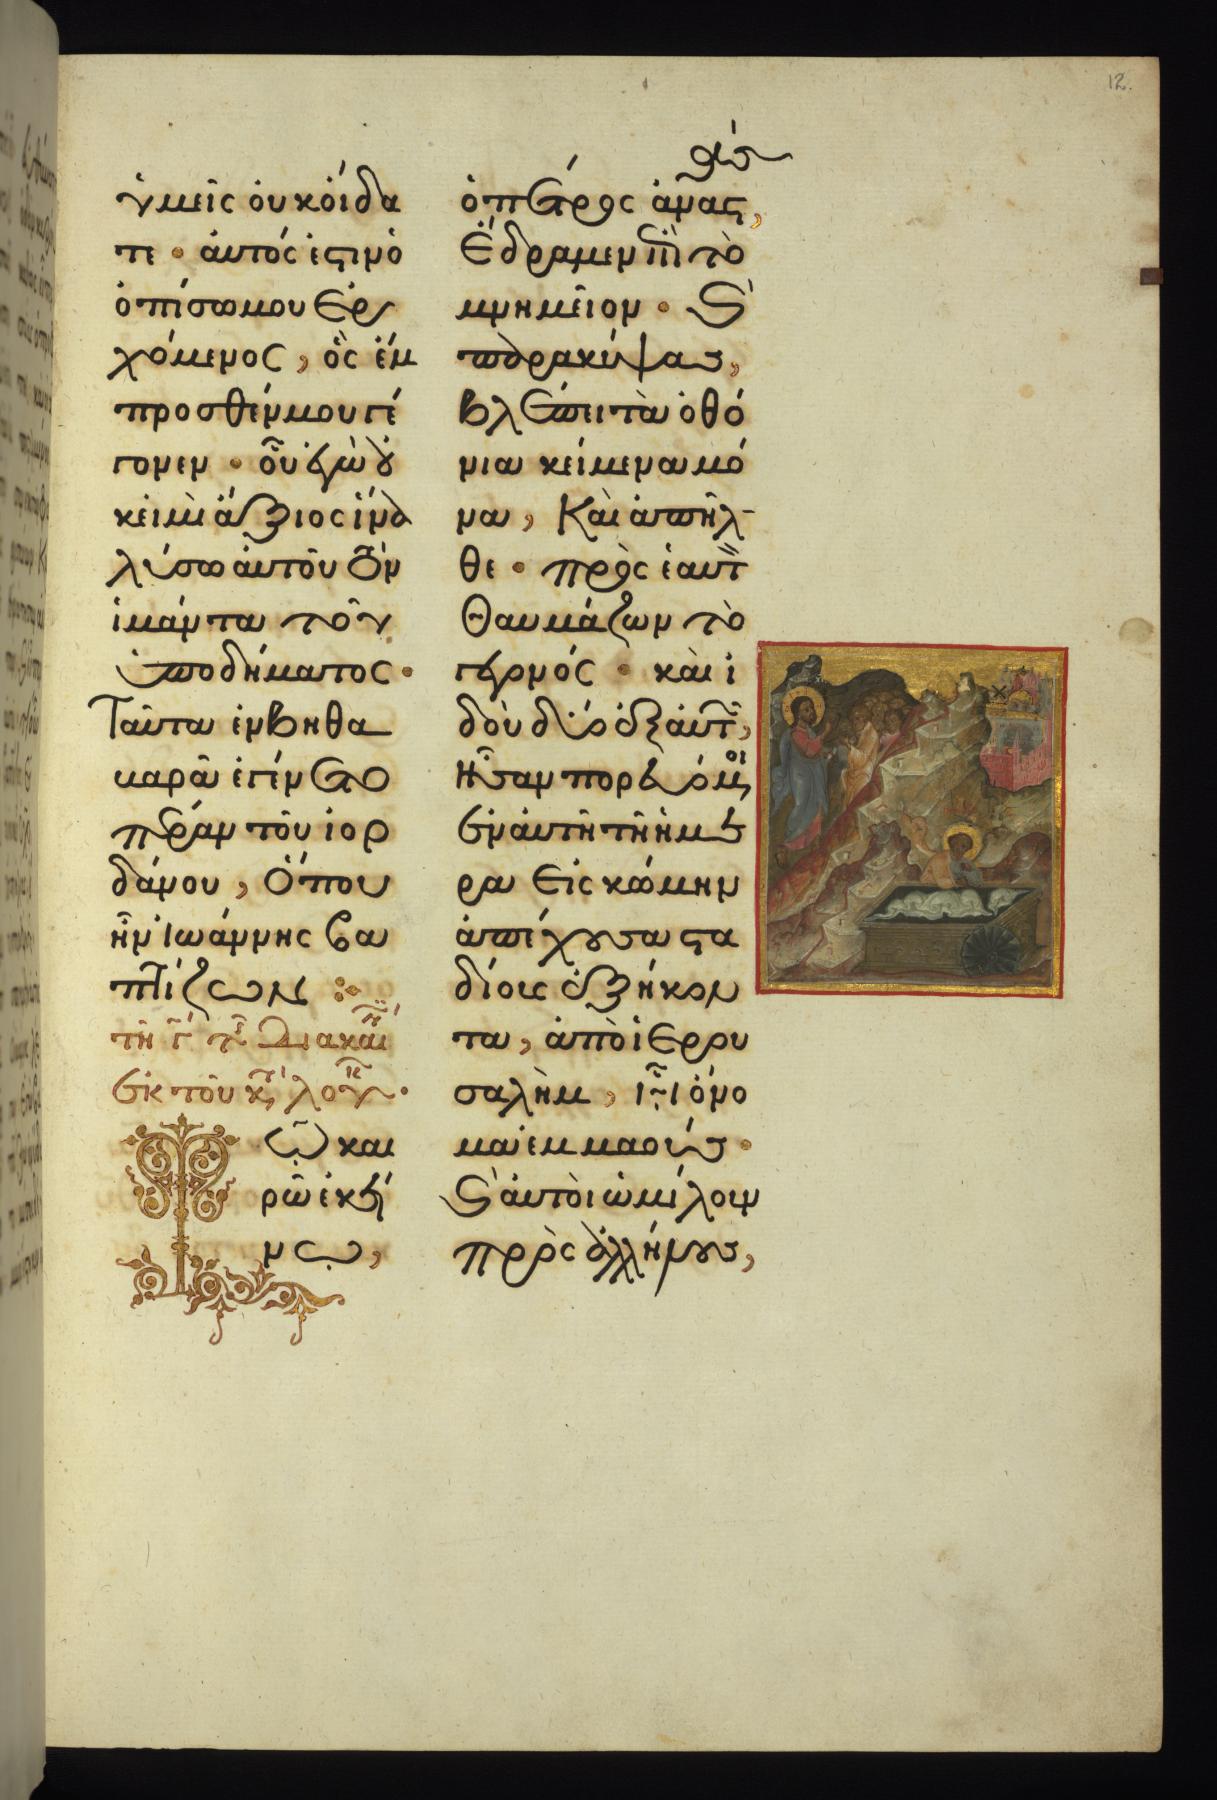 12.
ὑμεῖς οὐκ οἴδα
τε · αὐτός ἐστιν ὁ
ὀπίσω μου ἐρ
χόμενος, ὃς ἔμ
προσθέν μου γέ
γονεν · οὗ ἐγὼ οὐ
κ εἰμὶ ἄξιος ἵνα
λύσω αὐτοῦ τὸν
ἱμάντα τοῦ
ὑποδήματος ·
Ταῦτα ἐν βηθα
καρᾶ ἐγένετο
πέραν τοῦ ἰορ
δάνου, Ὅπου
ἦν ἰωάννης βα
πτίζων
τῇ γ τῆς διακαι
ἐκ τοῦ κτ λουκ ·
Τῷ και
ρῷ ἐκεί
νω,
ὁ πέτρος ἀναστ,
Ἔδραμεν ἐπὶ τὸ
μνημεῖον · Καὶ
παρακύψας,
βλέπει τὰ ὀθό
νια κείμενα μό
να, Καὶ ἀπῆλ
θε · πρὸς ἑαυτ
Θαυμάζων τὸ
γεγονός · καὶ ἰ
δοὺ δύο ἐξ αὐτ,
Ἦσαν πορευόμενοι
ἐν αὐτῇ τῇ ἡμέ
ρα εἰς κώμην
ἀπέχουσα στα
δίους ἑξήκον
τα, ἀπὸ ἱερου
σαλὴμ, ᾗ ὄνο
μα ἐμμαούς ·
Καὶ αὐτοὶ ὡμίλουν
πρὸς ἀλλήλους,